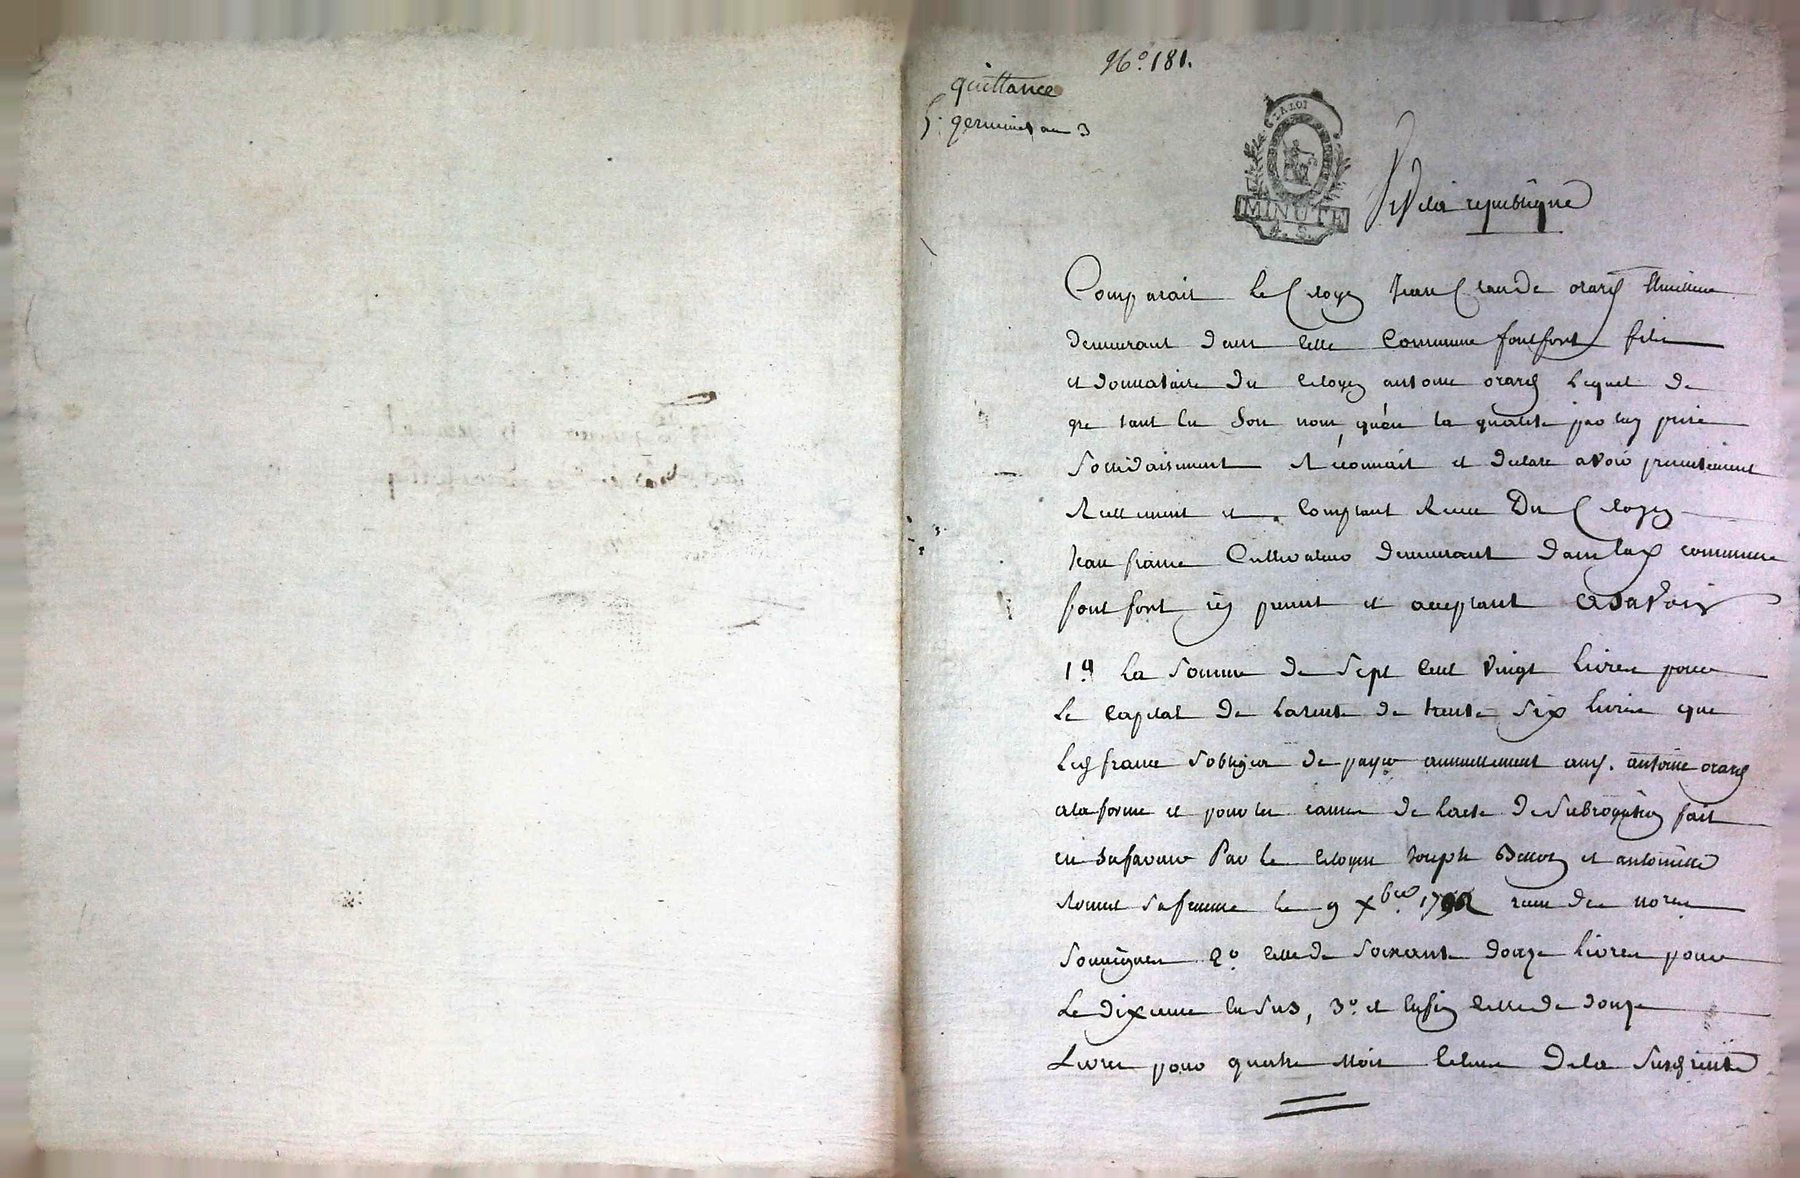 N.º 181.
quittance
5. germinal an 3
LA LOI
MINUTE
Vive la republique
Comparait le Citoyen Jean Claude orard
demeurant dans cette Commune fontfort fils
et donnataire du Citoyen antoine orard lequel de
gre tant en son nom, qu'en la qualité par luy prise
solidairement Reconnait et declare avoir presentement
Reellement et comptant Receu Du Citoyen
Jean france Cultivateur demeurant dans lad commune
font fort icy present et acceptant asavoir
1º La somme de sept cent vingt livres pour
le capital de la rente de trente six livres que
led france s'obligea de payer annuellement aud. antoine orard
ala forme et pour les causes de l'acte de subrogation fait
en sa faveur Par le Citoyen Joseph et antoinette
sa femme le 9 Xbre. 1792 receu des nores
soussignes 2º celle de soixante douze livres pour
Le dixieme en sus, 3º et enfin celle de douze
Livres pour quatre Mois de la susd rente